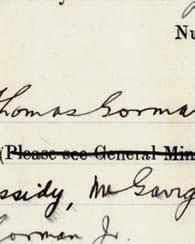 Nu
Thomas Gorma
(Please see General Min
ssidy, McGavig
Gorman Jr.